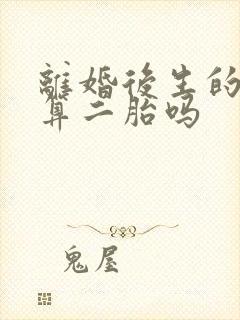 離婚後生的
算二胎吗
鬼屋